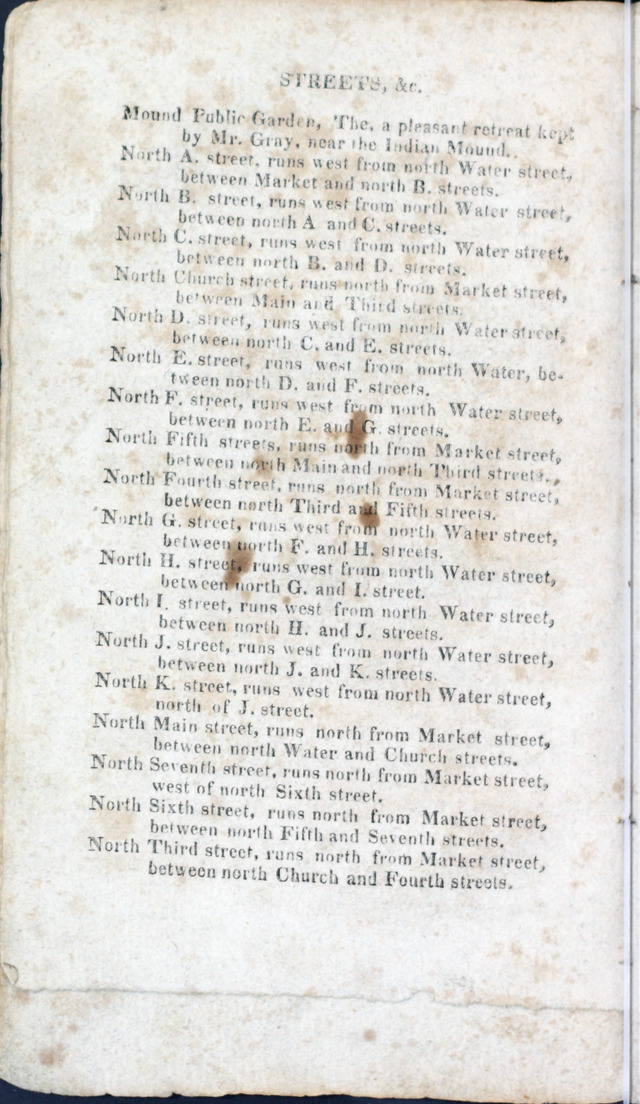 STREETS, &c.
Mound Public Garden, The, a pleasant retreat kept
by Mr. Gray, near the Indian Mound.
North A. street, runs west from north Water street,
between Market and north B. streets.
North B. street, runs west from north Water street,
between north A and C. streets.
North C. street, runs west from north Water street,
between north B. and D. streets.
North Church street, runs north from Market street,
between Main and Third streets.
North D. street, runs west from north Water street,
between north C. and E. streets.
North E. street, runs west from north Water, be-
tween north D. and F. streets.
North F. street, runs west from north Water street,
between north E. and G. streets.
North Fifth streets, runs north from Market street,
between north Main and north Third streets.
North Fourth street, runs north from Market street,
between north Third and Fifth streets.
North G. street, runs west from north Water street,
between north F. and H. streets.
North H. street, runs west from north Water street,
between north G. and I. street.
North I. street, runs west from north Water street,
between north H. and J. streets.
North J. street, runs west from north Water street,
between north J. and K. streets.
North K. street, runs west from north Water street,
north of J. street.
North Main street, runs north from Market street,
between north Water and Church streets.
North Seventh street, runs north from Market street,
west of north Sixth street.
North Sixth street, runs north from Market street,
between north Fifth and Seventh streets.
North Third street, runs north from Market street,
between north Church and Fourth streets.